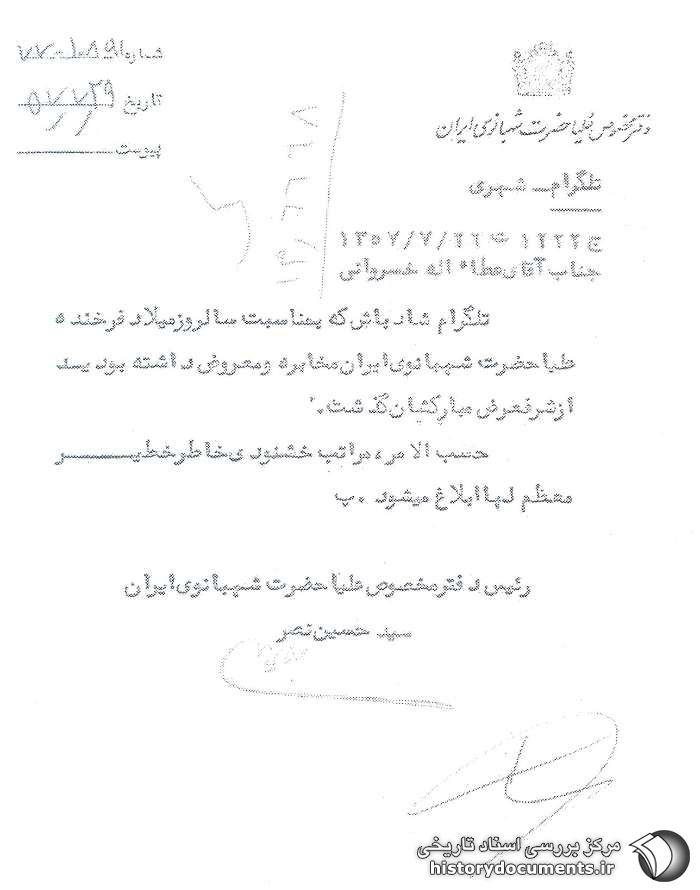 دفتر مخصوص علیا حضرت شهبانوی ایران
شماره
تاریخ ۵۷/۷/۲۹
پیوست
تلگرام ــ شهری
ج ۱۲۲۲ ت ۱۳۵۷/۷/۲۶
جناب آقای عطاء اله خسروانی
تلگرام شاد باش که بمناسبت سالروز میلاد فرخنده
علیا حضرت شهبانوی ایران مخابره و معروض داشته بودید
از شرفعرض مبارکشان گذشت .
حسب الامر، مراتب خشنودی خاطر خطیر
معظم لها ابلاغ میشود . پ
رئیس دفتر مخصوص علیا حضرت شهبانوی ایران
سید حسین نصر
مرکز بررسی اسناد تاریخی
historydocuments.ir